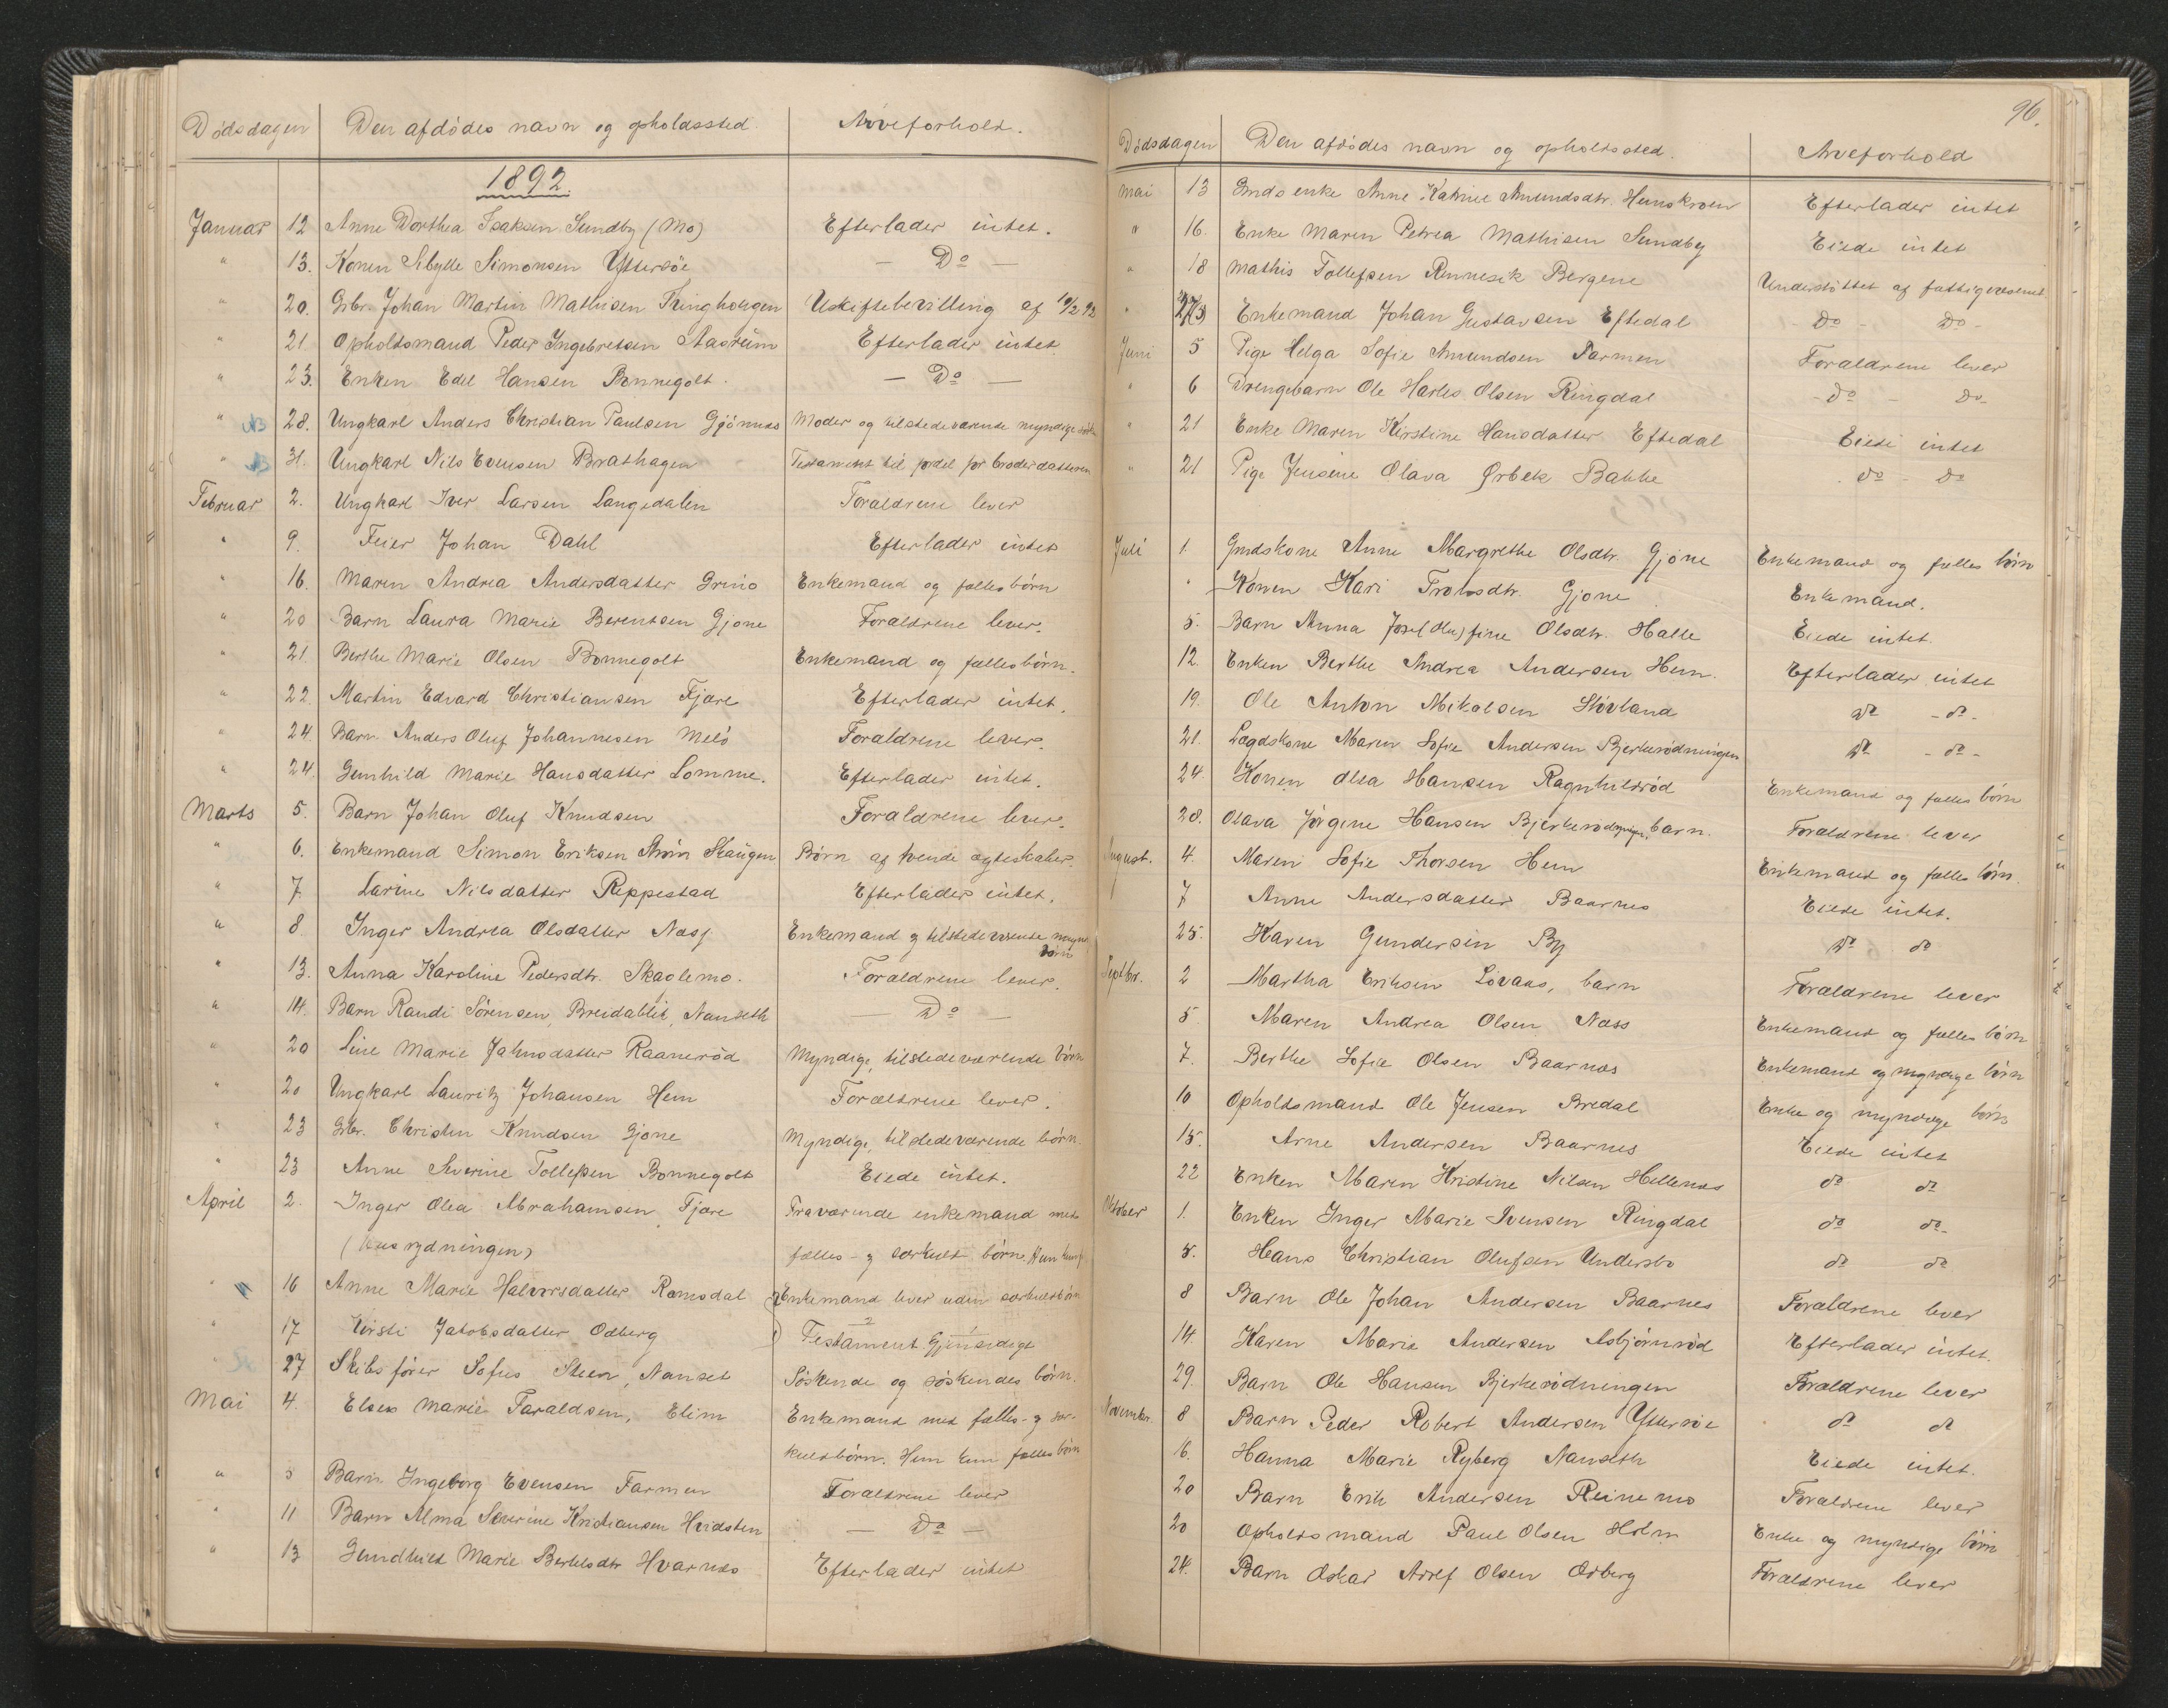 Dödsdagen Den afdödes navn og opholdssted. Arveforhold.
1892.
Januar 12 Anne Dorthea Isaksen Sundby (Mo) Efterlader intet.
" 13. Konen Sibylle Simonsen Yttersöe — Do —
" 20. Gbr. Johan Martin Mathisen Uskiftebevilling af 10/2 92
" 21 Opholdsmand Peder Ingebretsen Aasrum Efterlader intet
" 23. Enken Edel Hansen Bonnegolt. — Do —
" 28. Ungkarl Anders Christian Paulsen Gjönnes Moder og tilstedeværende myndige
" 31. Ungkarl Nils Evensen Brathagen Testament til fordel for broderdatteren
Februar 2. Ungkarl Iver Larsen Langedalen Forældrene lever
" 9. Feier Johan Dahl Efterlader intet
" 16. Maren Andrea Andersdatter Grino Enkemand og fællesbörn
" 20 Barn Laura Marie Berentsen Gjone Forældrene lever.
" 21. Berthe Marie Olsen Bonnegolt Enkemand og fællesbörn.
" 22. Martin Edvard Christiansen Fjære Efterlader intet.
" 24. Barn Anders Oluf Johannesen Melö Forældrene lever.
" 24. Gunhild Marie Hansdatter Lomme. Efterlader intet.
Marts 5. Barn Johan Oluf Knudsen Forældrene lever.
" 6. Enkemand Simon Eriksen Skaugen Börn af tvende ægteskaber.
" 7. Larine Nilsdatter Reppestad Efterlader intet.
" 8 Inger Andrea Olsdatter Næs Enkemand og tilstedeværende
börn
" 13. Anna Karoline Pedersdtr. Skaolemo. Forældrene lever.
" 14. Barn Randi Sörensen, Breidablik, Nanseth — Do —
" 20 Line Marie Jahnsdatter Raaneröd Myndige, tilstedeværende börn
" 20 Ungkarl Lauritz Johansen Hem Forældrene lever.
" 23 Gbr. Christen Knudsen Gjone Myndige, tilstedeværende börn.
" 23 Anne Severine Tollefsen Bonnegolt Eiede intet.
April 2. Inger Olea Abrahamsen Fjære Fraværende enkemand med
fælles- og særkuld börn. Hun kun
" 16 Anne Marie Halvorsdatter Ramsdal Enkemand lever uden særkuldsbörn
" 17 Kirsti Jakobsdatter Odberg Testament Gjensidige
" 27 Skibsförer Sofus Steen, Nanset Söskende og söskendes börn.
Mai 4. Elsea Marie Taraldsen, Elim Enkemand med fælles- og sær-
kuldsbörn. Hun kun fælles börn
" 5 Barn Ingeborg Evensen Farmen Forældrene lever
" 11 Barn Alma Severine Kristiansen Hvidsten — Do —
" 13 Gundhild Marie Bertelsdtr Hvarnes Efterlader intet
96.
Dödsdagen Den afdödes navn og opholdssted. Arveforhold
Mai 13 Gmdsenke Anne Katrine Amundsdtr. Hunskroen Efterlader intet
" 16. Enke Maren Petrea Mathisen Sundby Eiede intet
" 18 Mathis Tollefsen Bergene Understöttet af fattigvæsenet
" Enkemand Johan Gustavsen Eftedal - Do - Do -
Juni 5 Pige Helga Sofie Amundsen Farmen Forældrene lever
" 6 Drengebarn Ole Harles Olsen Ringdal - Do - Do -
" 21 Enke Maren Kirstine Hansdatter Eftedal Eiede intet
" 21 Pige Jensine Olava Ørbek Bakke Do - Do
Juli 1. Gmdskone Anne Margrethe Olsdtr. Gjöne Enkemand og fælles börn
" Konen Kari Trolsdtr. Gjone Enkemand.
5. Barn Anna Josefine Olsdtr. Halle Eiede intet.
12. Enken Berthe Andrea Andersen Hem. Efterlader intet
19. Ole Anton Mikalsen Stövland Do - do -
21. Lægdskone Maren Sofie Andersen Bjerkerödningen Do - do -
24. Konen Olea Hansen Ragnhilsröd Enkemand og fælles börn
28. Olava Jörgine Hansen Bjerkerödningen, barn. Forældrene lever
August. 4. Maren Sofie Thorsen Hem Enkemand og fælles börn.
7 Anne Andersdatter Baarnes Eiede intet.
25. Karen Gundersen By Do do
Septbr. 2 Martha Eriksen Lövaas, barn Forældrene lever
5. Maren Andrea Olsen Næss Enkemand og fælles börn
7. Berthe Sofie Olsen Baarnæs Enkemand og myndige börn
10 Opholdsmand Ole Jensen Bredal Enke og myndige börn
15. Arne Andersen Baarnes Eiede intet
22 Enken Maren Kristine Nilsen Hellenæs do do
Oktober 1. Enken Inger Marie Ivensen Ringdal do do-
5. Hans Christian Olufsen Undersbo do do
8 Barn Ole Johan Andersen Baarnes Forældrene lever
14. Karen Marie Andersen Asbjörnröd Efterlader intet.
29. Barn Ole Hansen Bjerkerödningen Forældrene lever
November. 8 Barn Peder Robert Andersen Yttersöe do do
16. Hanna Marie Ryberg Nanseth Eiede intet.
20 Barn Erik Andersen Reinemo Forældrene lever
20 Opholdsmand Paul Olsen Holm Enke og myndige börn
24. Barn Oskar Adolf Olsen Odberg Forældrene lever